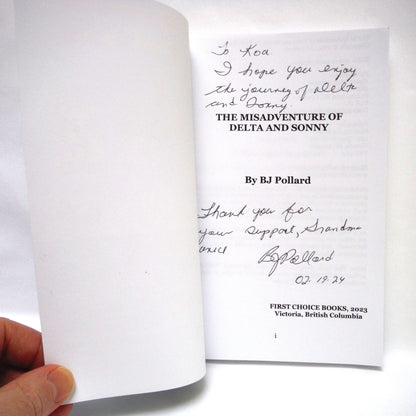 To Koa
I hope you enjoy
the journey of Delta
and Sonny.
THE MISADVENTURE OF
DELTA AND SONNY
By BJ Pollard
Thank you for
your support, Grandma
BJPollard
02.19.24
FIRST CHOICE BOOKS, 2023
Victoria, British Columbia
i